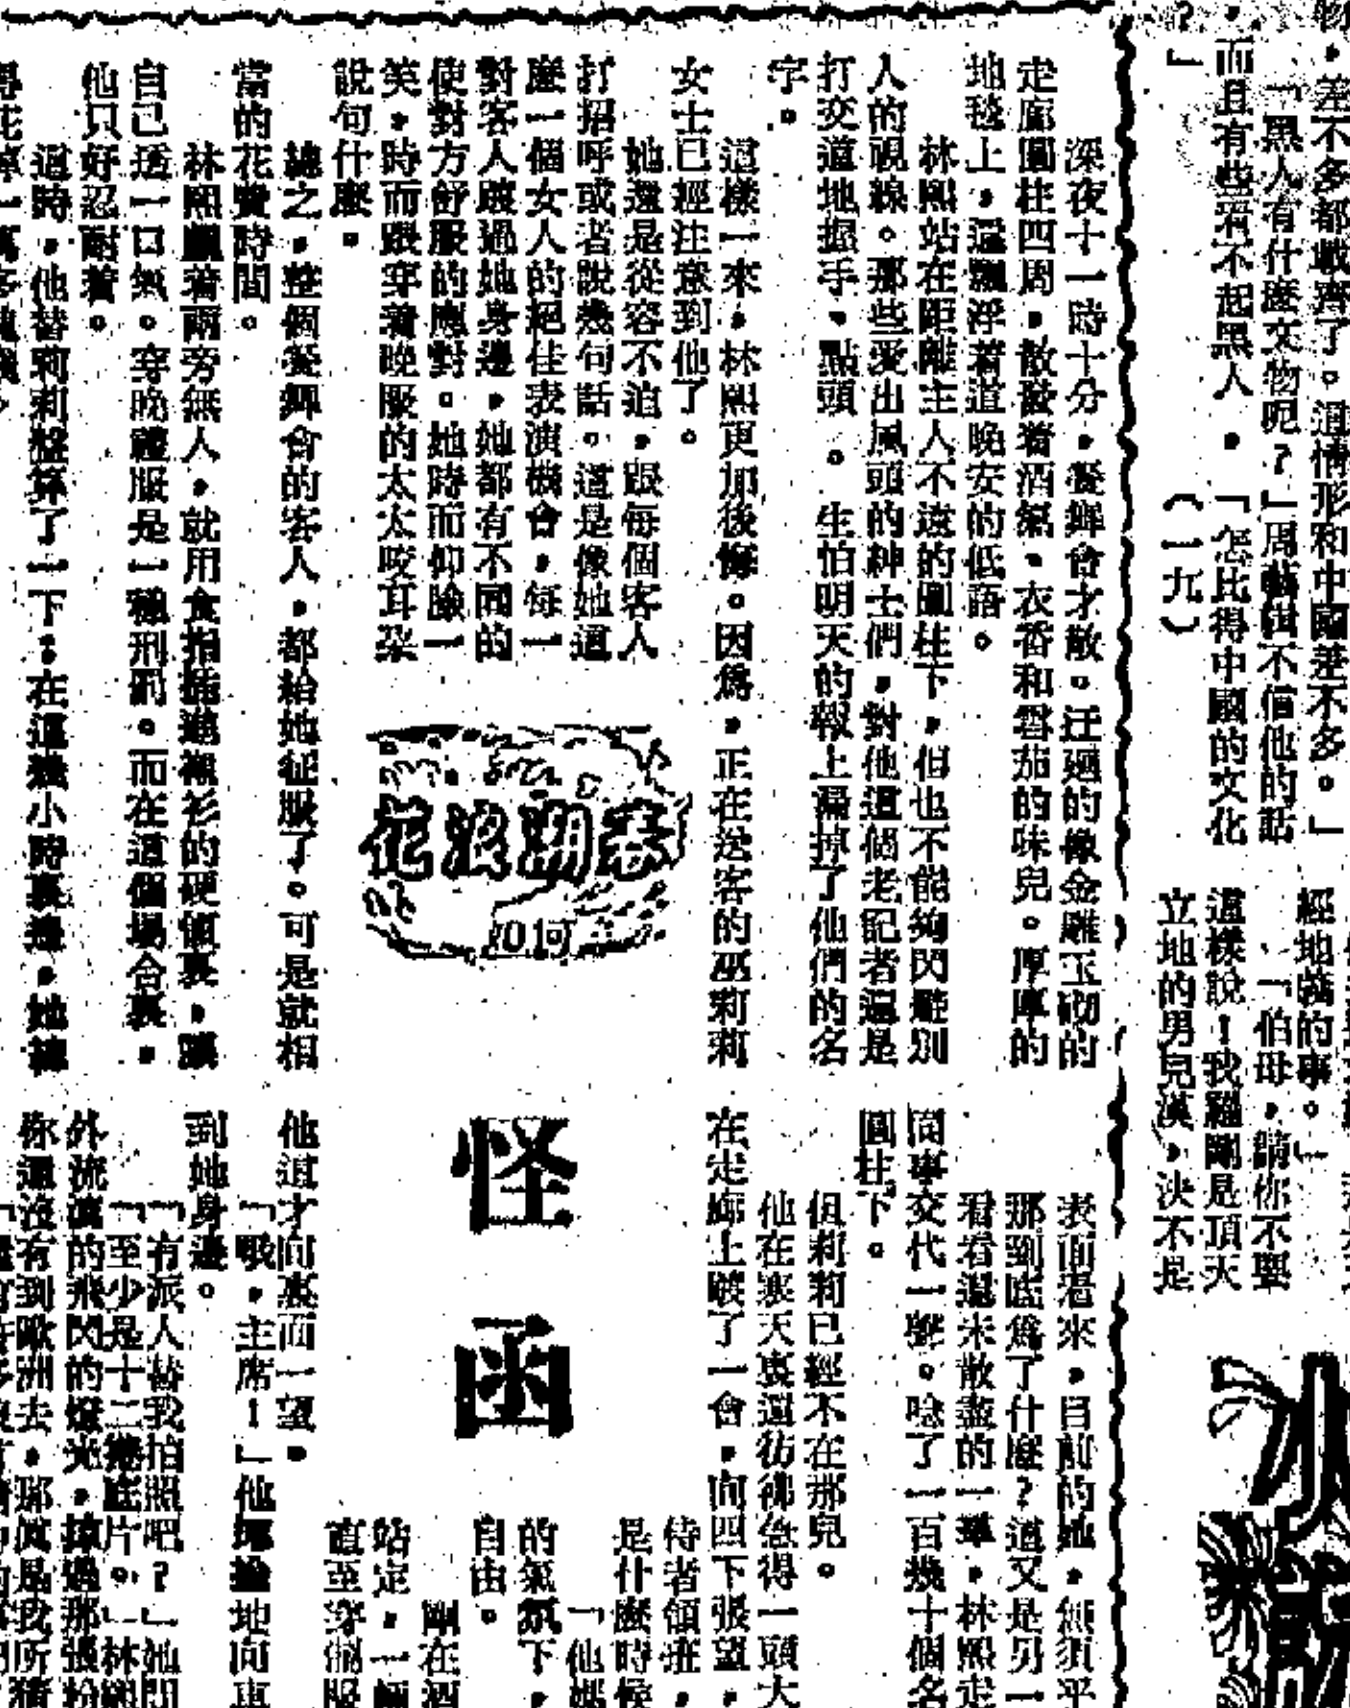 物，差不多都戰齊了。這情形和中國差不多。」
「黑人有什麼文物呢？」周
不信他的話
，而且有些看不起黑人，「怎比得中國的文化
？」
（一九）
經地義的事。」
「伯母，請你不要
這樣說！我羅剛是頂天
立地的男兒漢，決不是
深夜十一時十分，餐舞會才散。汪迴的像金雕玉砌的
走廊圓柱四周，散發着酒氣、衣香和雪茄的味兒。厚厚的
地毯上，還飄浮着道晚安的低語。
林熙站在距離主人不遠的圓柱下，但也不能夠閃避別
人的視線。那些愛出風頭的紳士們，對他這個老記者還是
打交道地握手，點頭。生怕明天的報上漏掉了他們的名
字。
這樣一來，林熙更加後悔。因為，正在送客的巫莉莉
女士已經注意到他了。
她還是從容不迫，跟每個客人
打招呼或者說幾句話。這是像她這
麼一個女人的絕佳表演機會，每一
對客人踱過她身邊，她都有不同的
使對方舒服的應對。她時而仰臉一
笑，時而跟穿着晚服的太太咬耳朵
說句什麼。
總之，整個餐舞會的客人，都給她征服了。可是就相
當的花費時間。
林熙飄着兩旁無人，就用食指插進襯衫的硬領裏，讓
自己透一口氣。穿晚禮服是一種刑罰。而在這個場合裏，
他只好忍耐着。
這時，他替莉莉盤算了一下：在這幾小時裏邊，她
寒潮浪花
怪函
表面看來，目前的她，無須平
那到底為了什麼？這又是另一
看看還未散盡的一羣，林熙走
同事交代一聲。唸了一百幾十個名
圓柱下。
但莉莉已經不在那兒。
他在寒天裏還彷彿急得一頭大
在走廊上踱了一會，向四下張望，
侍者領班，
是什麼時候
「他
的氣氛下，
自由。
剛在酒
站定，一輛
直至穿制服
他這才向裏面一望。
「哦，主席！」他揶揄地向
到她身邊。
「有派人替我拍照吧？」她問
「至少是十二捲底片。」林
外流瀉的飛閃的燈光，掠過那張粉
你還沒有到歐洲去，那真是我所猜